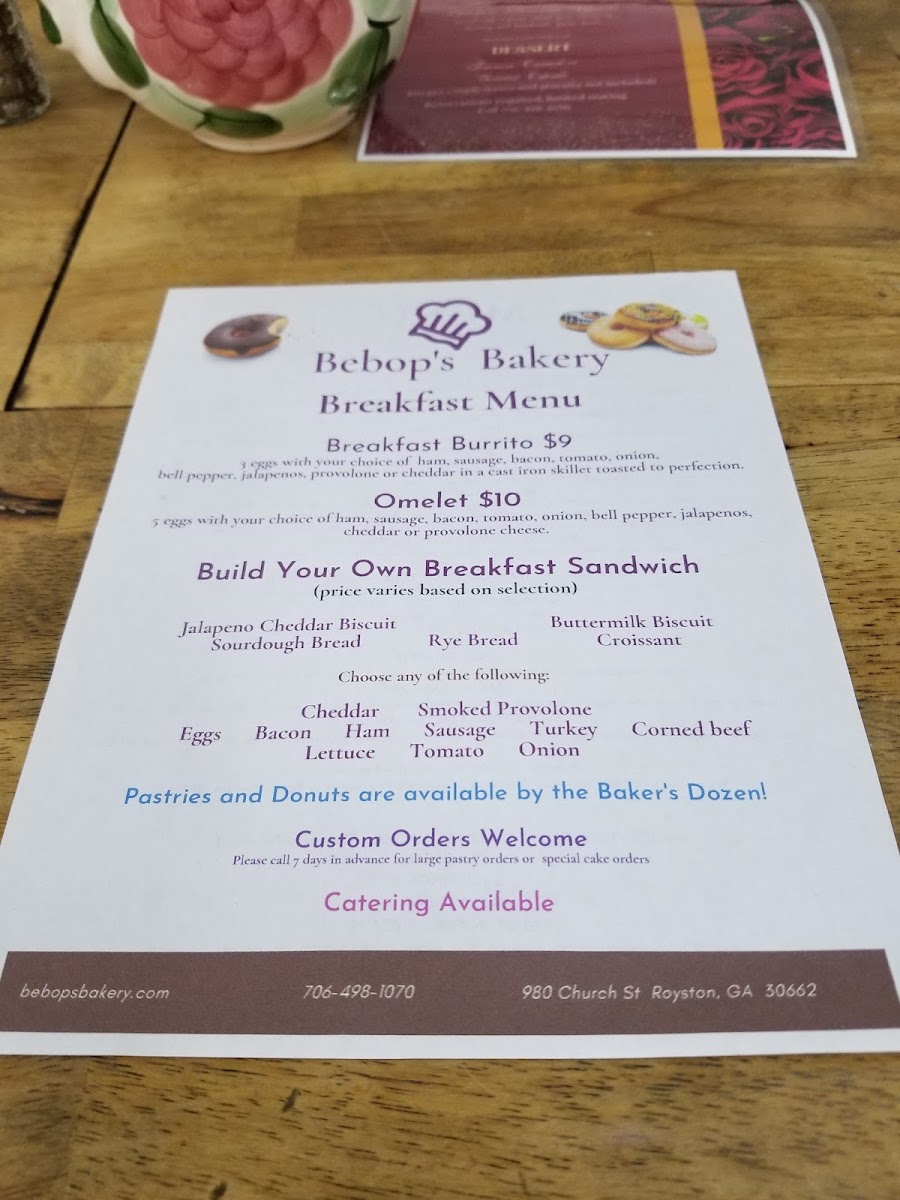 DESSERT
Bebop's Bakery
Breakfast Menu
Breakfast Burrito $9
3 eggs with your choice of ham, sausage, bacon, tomato, onion,
bell pepper, jalapenos, provolone or cheddar in a cast iron skillet toasted to perfection.
Omelet $10
5 eggs with your choice of ham, sausage, bacon, tomato, onion, bell pepper, jalapenos,
cheddar or provolone cheese.
Build Your Own Breakfast Sandwich
(price varies based on selection)
Jalapeno Cheddar Biscuit Buttermilk Biscuit
Sourdough Bread Rye Bread Croissant
Choose any of the following:
Cheddar Smoked Provolone
Eggs Bacon Ham Sausage Turkey Corned beef
Lettuce Tomato Onion
Pastries and Donuts are available by the Baker's Dozen!
Custom Orders Welcome
Please call 7 days in advance for large pastry orders or special cake orders
Catering Available
bebopsbakery.com 706-498-1070 980 Church St Royston, GA 30662